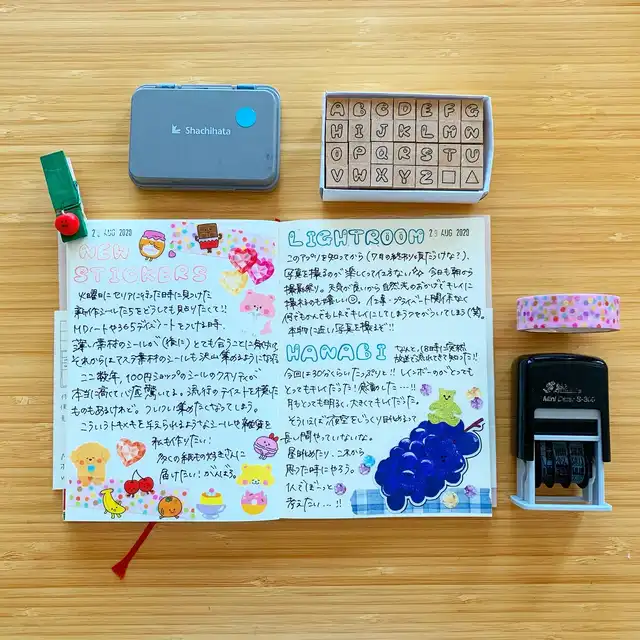 Shachihata
A B C D E F G
H I J K L M N
O P Q R S T U
V W X Y Z
28 AUG 2020
NEW
STICKERS
火曜日にセリアに行った日時に見つけた
新作シールたちをどうしても見りたくて!!
MDノートや365デイズノートをつける時、
深い素材のシールが(特に)とても合うことに気付いて
それからはマステ素材のシールも沢山集めるようになった
ここ数年、100円ショップのクオリティが
本当に高くて一度驚いてる。流行のテイストを横た
ものもあるけれど。フレフレ集めたくなってしまう。
こういうトキメキを与えられるようなシールや雑貨を
私も作りたい!
多くの紙もの好きさんに
届けたい!がんばろ。
LIGHTROOM
29 AUG 2020
このアプリを知ってから(7月の終わり頃だけな?)、
写真を撮るのが楽しくって仕方ない 今日も朝から
撮影祭り。天気が良いから自然光のおかげでキレイに
撮れるのも嬉しい 仕事・プライベート関係なく
何でもかんでもLRでキレイにしてしまうクセがついてしまう(笑)
本物に近い写真を撮るぞ!!
HANABI
なんと、(8時に突然
放送で流れてきて知った!!
今回は30分くらいたっぷりと!! レインボーのがとっても
とってもキレイだった!感動した…!!
月もとっても明るく、大きくてキレイだった。
そういえば夜空をじっくり眺めるって
長い間やっていないな。
星眺めたり、これから
思った時にやろう。
1人でぼーっと
考えたい…!!
Shiny
Mini Dater S-300